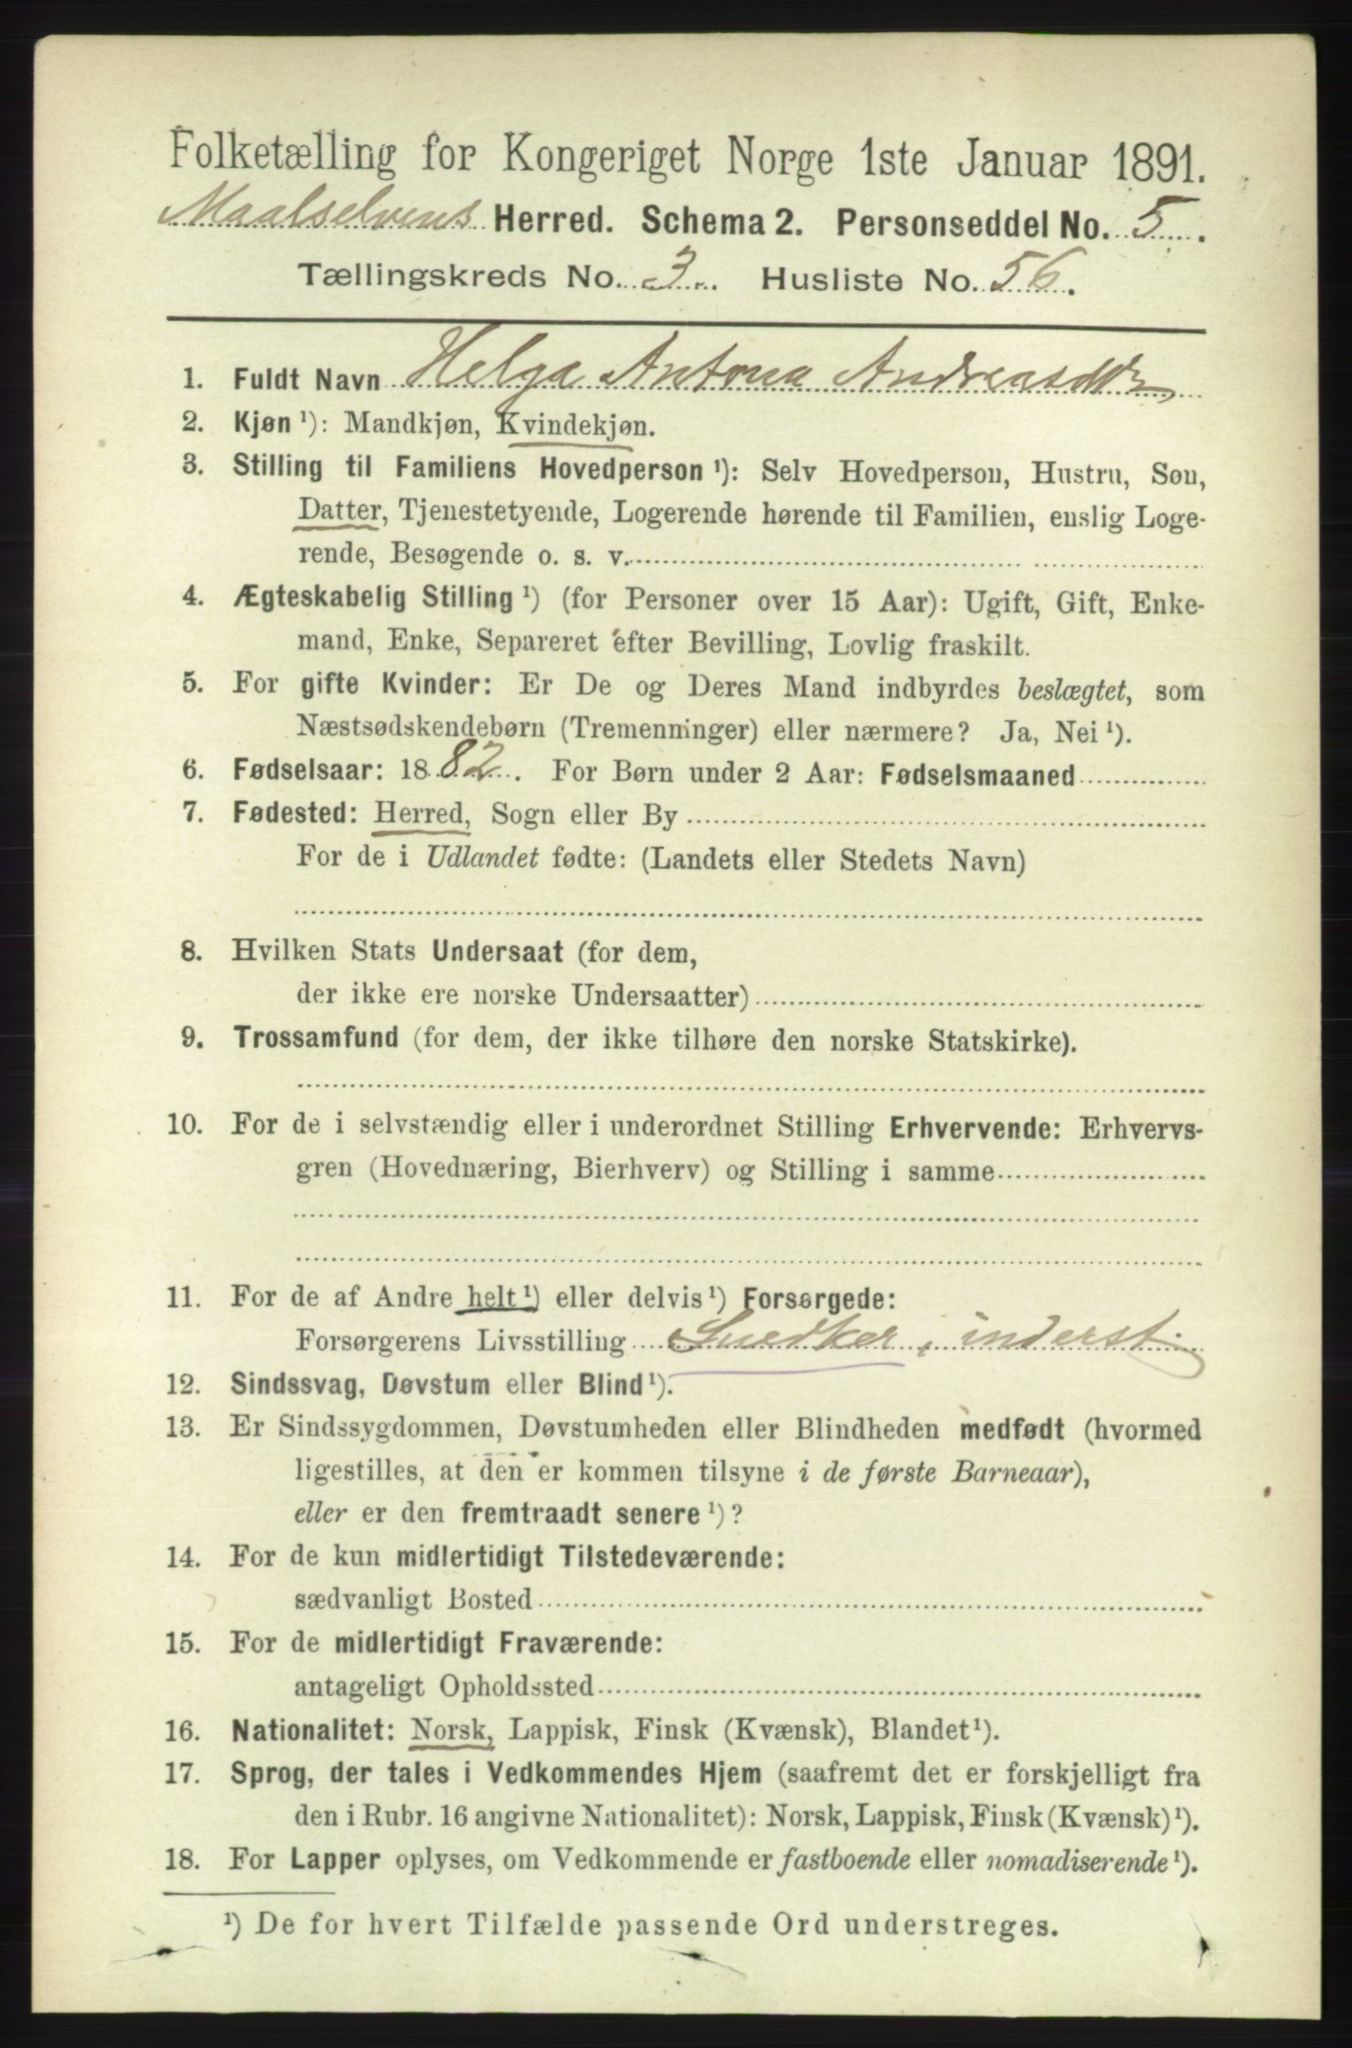 Folketælling for Kongeriget Norge 1ste Januar 1891.
Maalselvens Herred. Schema 2. Personseddel No. 5.
Tællingskreds No. 3. Husliste No. 56.
1. Fuldt Navn Helga Antona Andreasdtr
2. Kjøn ¹): Mandkjøn, Kvindekjøn.
3. Stilling til Familiens Hovedperson ¹): Selv Hovedperson, Hustru, Søn,
Datter, Tjenestetyende, Logerende hørende til Familien, enslig Loge-
rende, Besøgende o. s. v.
4. Ægteskabelig Stilling ¹) (for Personer over 15 Aar): Ugift, Gift, Enke-
mand, Enke, Separeret efter Bevilling, Lovlig fraskilt.
5. For gifte Kvinder: Er De og Deres Mand indbyrdes beslægtet, som
Næstsødskendebørn (Tremenninger) eller nærmere? Ja, Nei ¹).
6. Fødselsaar: 1882. For Børn under 2 Aar: Fødselsmaaned
7. Fødested: Herred, Sogn eller By
For de i Udlandet fødte: (Landets eller Stedets Navn)
8. Hvilken Stats Undersaat (for dem,
der ikke ere norske Undersaatter)
9. Trossamfund (for dem, der ikke tilhøre den norske Statskirke).
10. For de i selvstændig eller i underordnet Stilling Erhvervende: Erhvervs-
gren (Hovednæring, Bierhverv) og Stilling i samme
11. For de af Andre helt ¹) eller delvis ¹) Forsørgede:
Forsørgerens Livsstilling Snedker, inderst.
12. Sindssvag, Døvstum eller Blind ¹).
13. Er Sindssygdommen, Døvstumheden eller Blindheden medfødt (hvormed
ligestilles, at den er kommen tilsyne i de første Barneaar),
eller er den fremtraadt senere ¹)?
14. For de kun midlertidigt Tilstedeværende:
sædvanligt Bosted
15. For de midlertidigt Fraværende:
antageligt Opholdssted
16. Nationalitet: Norsk, Lappisk, Finsk (Kvænsk), Blandet ¹).
17. Sprog, der tales i Vedkommendes Hjem (saafremt det er forskjelligt fra
den i Rubr. 16 angivne Nationalitet): Norsk, Lappisk, Finsk (Kvænsk) ¹).
18. For Lapper oplyses, om Vedkommende er fastboende eller nomadiserende ¹).
¹) De for hvert Tilfælde passende Ord understreges.